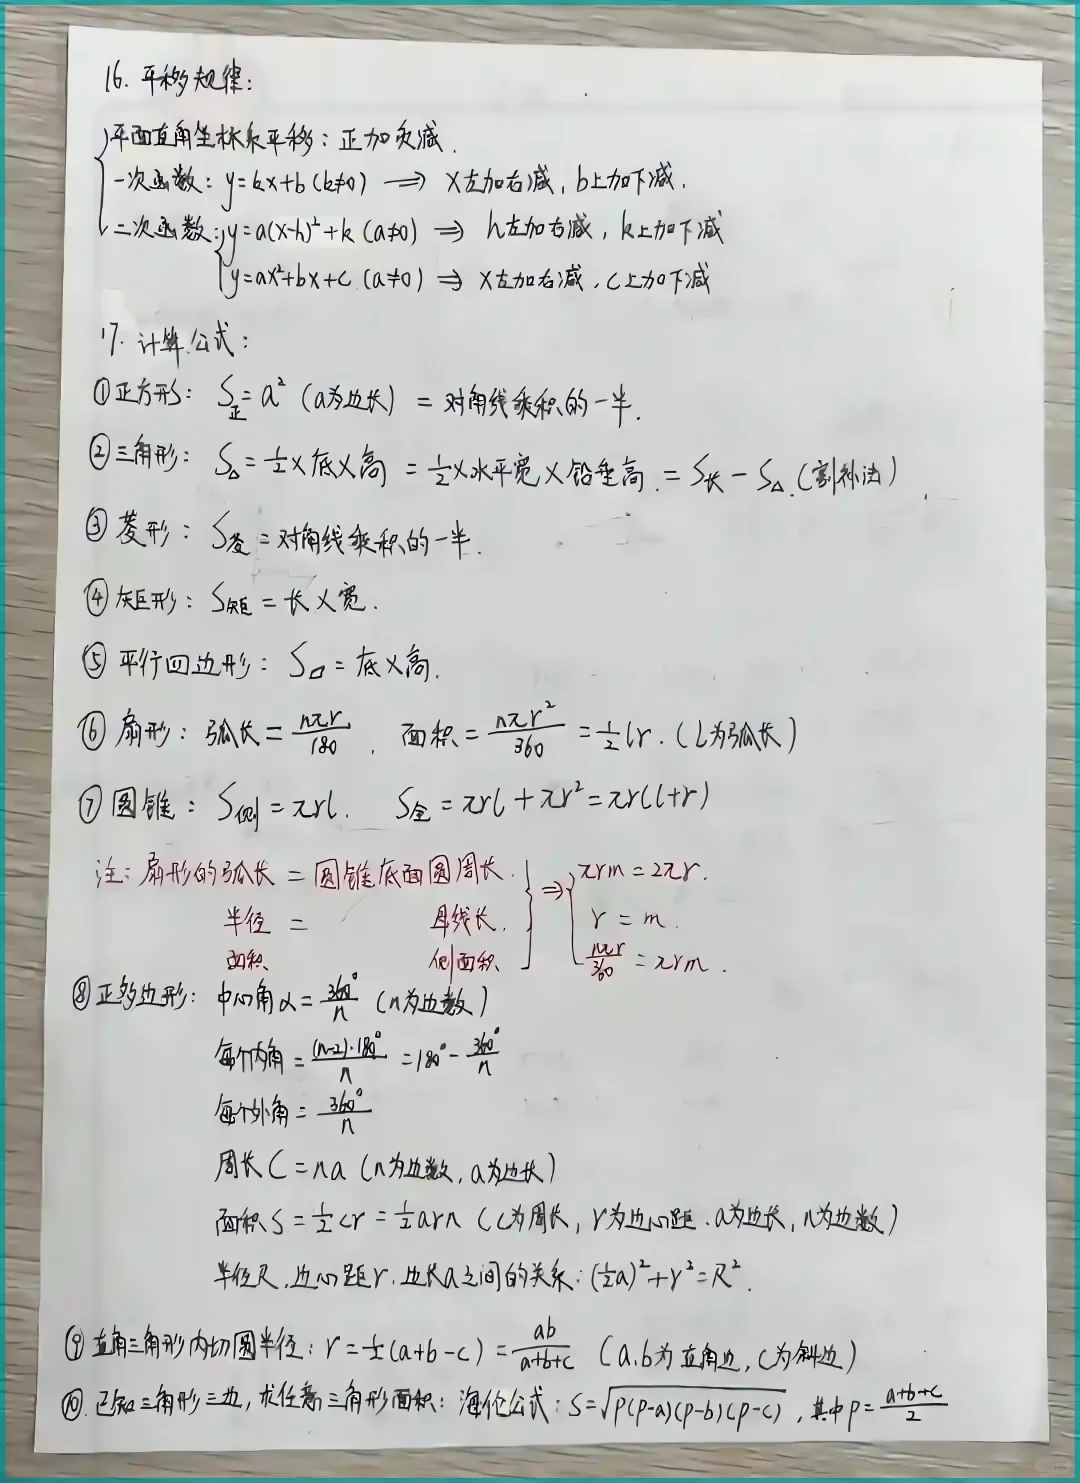 16. 平移规律:
平面直角坐标系平移: 正加负减.
一次函数: y=kx+b (k≠0) ⇒ x左加右减, b上加下减.
二次函数: y=a(x-h)²+k (a≠0) ⇒ h左加右减, k上加下减
y=ax²+bx+c (a≠0) ⇒ x左加右减, c上加下减
17. 计算公式:
①正方形: S正=a² (a为边长) = 对角线乘积的一半.
②三角形: S△=1/2×底×高 = 1/2×水平宽×铅垂高. = S长-S△. (割补法)
③菱形: S菱=对角线乘积的一半.
④矩形: S矩=长×宽.
⑤平行四边形: S▱=底×高.
⑥扇形: 弧长=nπr/180, 面积=nπr²/360=1/2lr. (l为弧长)
⑦圆锥: S侧=πrl. S全=πrl+πr²=πr(l+r)
注: 扇形的弧长 = 圆锥底面圆周长. ⇒ πrm=2πr.
半径 = 母线长. r=m.
面积 侧面积 nπr/360=πrm.
⑧正多边形: 中心角α=360°/n (n为边数)
每个内角=(n-2)·180°/n=180°-360°/n
每个外角=360°/n
周长C=na (n为边数, a为边长)
面积S=1/2cr=1/2arn (C为周长, r为边心距. a为边长, n为边数)
半径R.边心距r.边长a之间的关系: (1/2a)²+r²=R².
⑨直角三角形内切圆半径: r=1/2(a+b-c)=ab/a+b+c (a.b为直角边, c为斜边)
⑩.已知三角形三边, 求任意三角形面积: 海伦公式: S=√p(p-a)(p-b)(p-c), 其中p=a+b+c/2